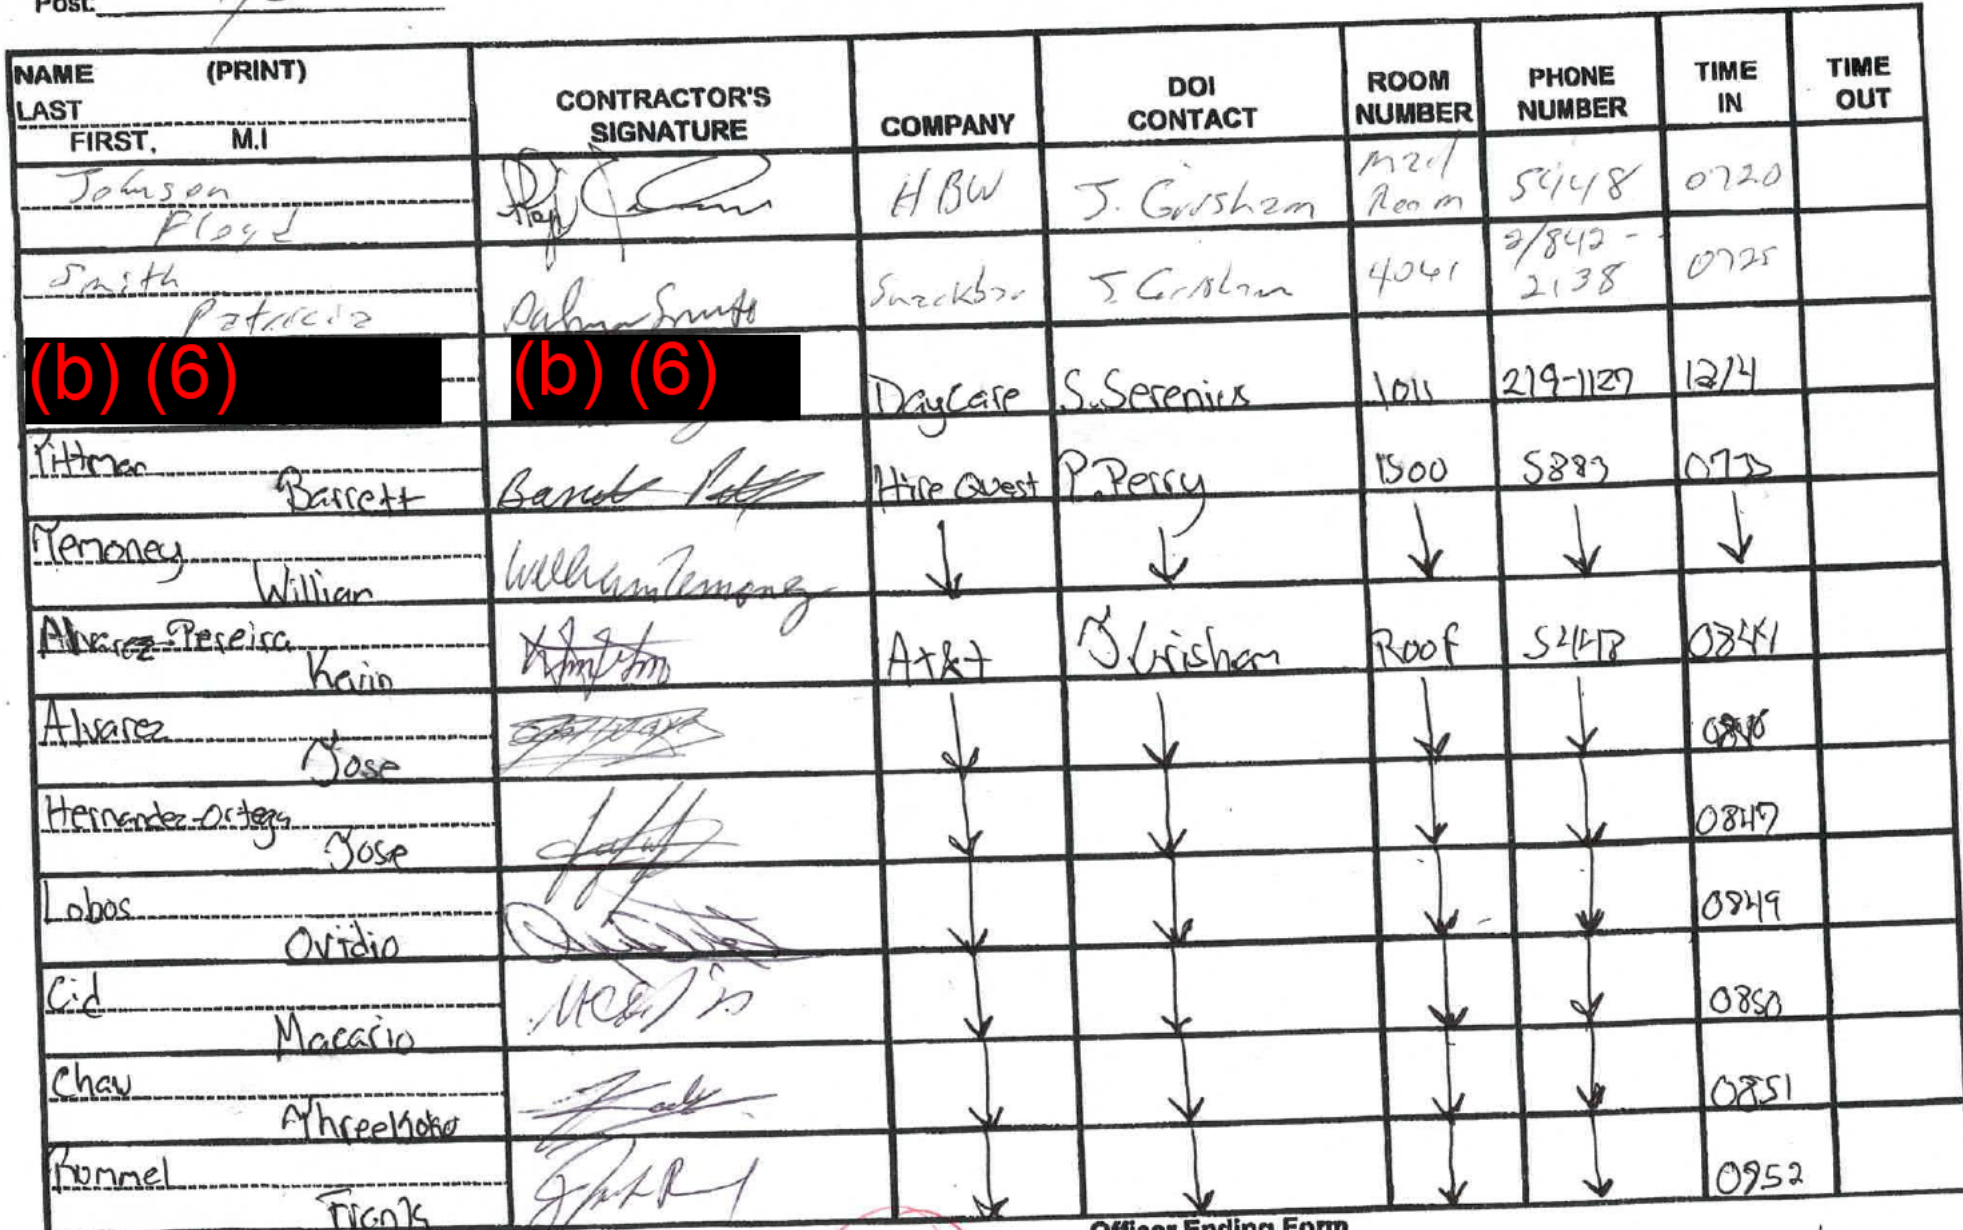 Post:
NAME (PRINT)
LAST
FIRST, M.I
CONTRACTOR'S
SIGNATURE
COMPANY
DOI
CONTACT
ROOM
NUMBER
PHONE
NUMBER
TIME
IN
TIME
OUT
Johnson
Floyd
HBW
J. Grisham
Mail
Room
5448
0720
Smith
Patricia
Snackbar
J Grisham
4041
2/842-
2138
0725
(b) (6)
(b) (6)
Daycare
S. Serenius
1011
219-1127
12/4
Pittman
Barrett
Hire Quest
P. Perry
1500
5883
Temoney
William
William Temoney
Alvarez-Pereira
Kevin
At&t
J Grisham
Roof
5448
0841
Alvarez
Jose
Hernandez-Ortega
Jose
0847
Lobos
Ovidio
0849
Cid
Macario
0850
Chaw
Threekoko
0851
Rommel
Frank
0852
Officer Ending Form